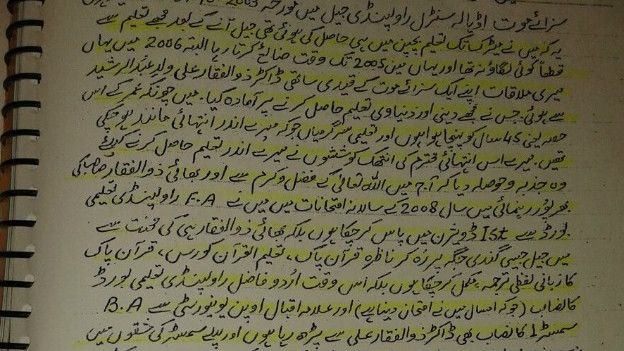 سزائے موت اڈیالہ سنٹرل راولپنڈی جیل میں مورخہ 2003
یہ کہ میں نے میٹرک تک تعلیم بچپن میں ہی حاصل کی ہوئی تھی جیل آنے کے بعد مجھے تعلیم سے
قطعاً کوئی لگاؤ نہ تھا اور یہاں میں 2005 تک وقت ضائع کرتا رہا البتہ 2006 میں یہاں
میری ملاقات اپنے ایک سزائے موت کے قیدی ساتھی ڈاکٹر ذوالفقار علی ولد عبدالرشید
سے ہوئی۔ جس نے مجھے دینی اور دنیاوی تعلیم حاصل کرنے پر آمادہ کیا۔ میں چونکہ عمر کے اس
حصہ یعنی 45 سال کو پہنچا ہوا ہوں اور تعلیمی سرگرمیاں جو کہ میرے اندر انتہائی ماند پڑ چکی
تھیں۔ میرے اس انتہائی محترم کی انتھک کوششوں نے میرے اندر تعلیم حاصل کرنے کیلئے
وہ جذبہ و حوصلہ دیا کہ آج میں اللہ تعالیٰ کے فضل و کرم سے اور بھائی ذوالفقار صاحب کی
بھرپور رہنمائی میں سال 2008 کے سالانہ امتحانات میں میں نے F.A راولپنڈی تعلیمی
بورڈ سے Ist ڈویژن میں پاس کر چکا ہوں بلکہ بھائی ذوالفقار ہی کی محنت سے
میں جیل جیسی گندی جگہ پر رہ کر ناظرہ قرآن پاک، تعلیم القرآن کورس، قرآن پاک
کا زبانی لفظی ترجمہ مکمل کر چکا ہوں بلکہ اس وقت اُردو فاضل راولپنڈی تعلیمی بورڈ
کا نصاب (جو کہ امسال میں نے امتحان دینا ہے) اور علامہ اقبال اوپن یونیورسٹی سے B.A
سمسٹر 1 کا نصاب بھی ڈاکٹر ذوالفقار علی سے پڑھ رہا ہوں اور پہلے سمسٹر کی مشقوں میں